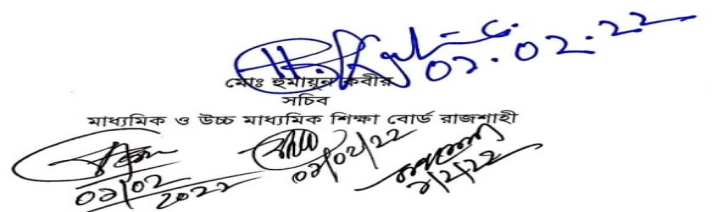 ০২.০২.২২
মোঃ হুমায়ুন কবীর
সচিব
মাধ্যমিক ও উচ্চ মাধ্যমিক শিক্ষা বোর্ড রাজশাহী
০২/০২/২২
০২/০২/২০২২
২/২/২২